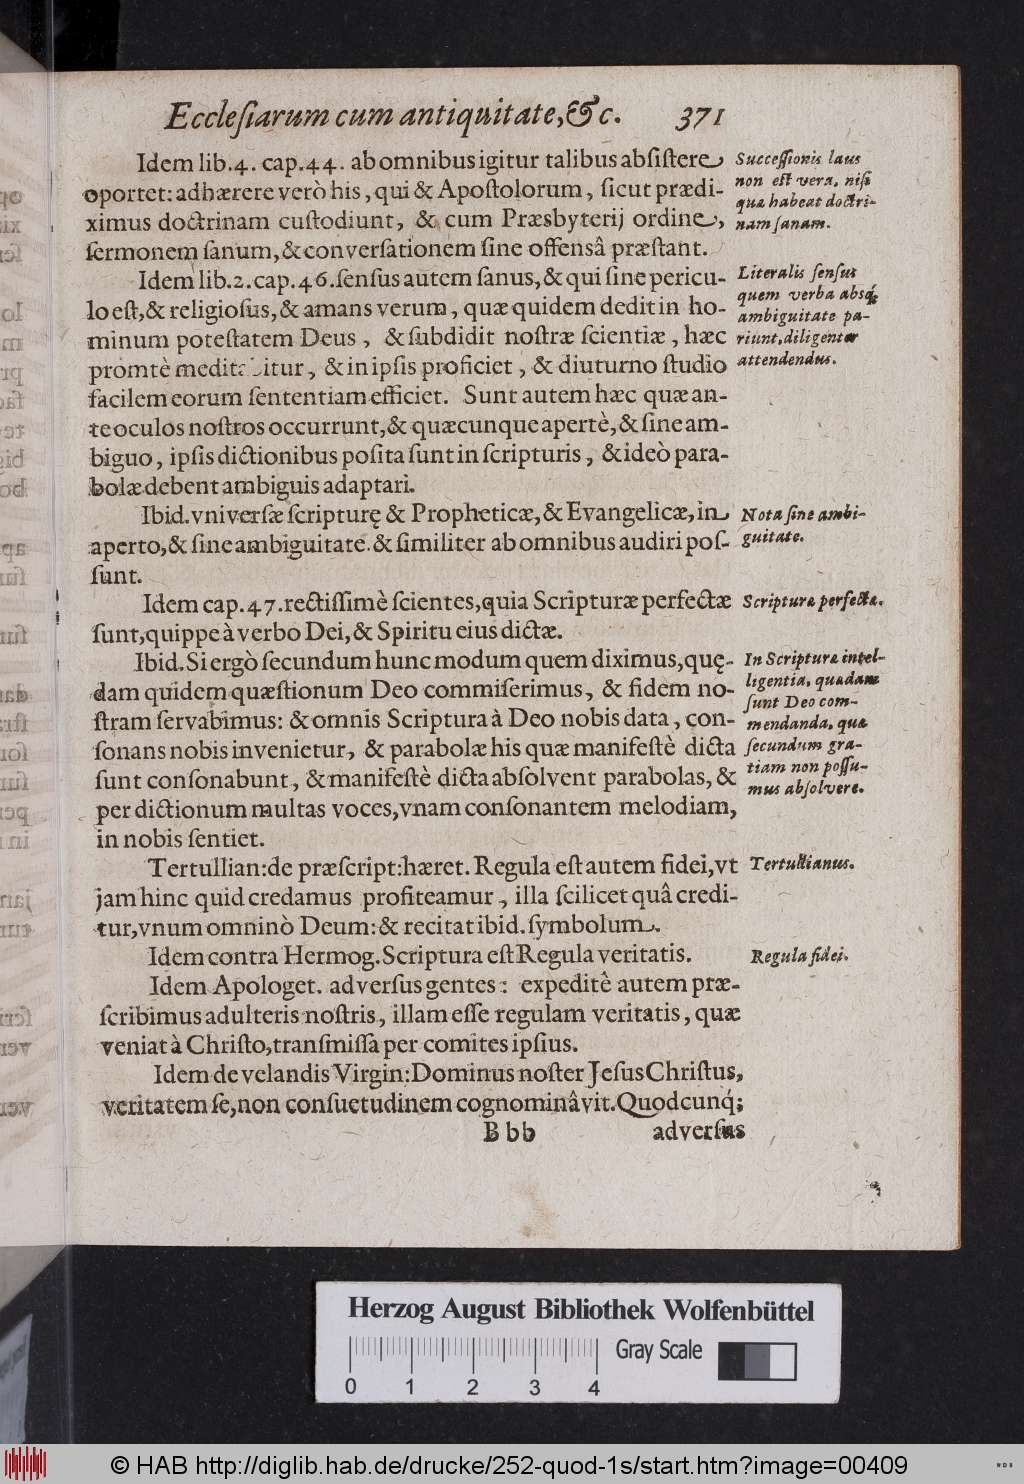 Eccleſiarum cum antiquitate, &c. 371
Idem lib.4. cap.44. ab omnibus igitur talibus abſiſtere
oportet: adhærere verò his, qui & Apoſtolorum, ſicut prædi-
ximus doctrinam cuſtodiunt, & cum Præsbyterij ordine,
ſermonem ſanum, & converſationem ſine offensâ præſtant.
Succeſſionis laus
non eſt vera, niſi
qua habeat doctri-
nam ſanam.
Idem lib.2. cap.46. ſenſus autem ſanus, & qui ſine pericu-
lo eſt, & religioſus, & amans verum, quæ quidem dedit in ho-
minum poteſtatem Deus, & ſubdidit noſtræ ſcientiæ, hæc
promtè meditabitur, & in ipſis proficiet, & diuturno ſtudio
facilem eorum ſententiam efficiet. Sunt autem hæc quæ an-
te oculos noſtros occurrunt, & quæcunque apertè, & ſine am-
biguo, ipſis dictionibus poſita ſunt in ſcripturis, & ideò para-
bolæ debent ambiguis adaptari.
Literalis ſenſus
quem verba absq́;
ambiguitate pa-
riunt, diligenter
attendendus.
Ibid. vniverſæ ſcripturę & Propheticæ, & Evangelicæ, in
aperto, & ſine ambiguitate. & ſimiliter ab omnibus audiri poſ-
ſunt.
Nota ſine ambi-
guitate.
Idem cap.47. rectiſſimè ſcientes, quia Scripturæ perfectæ
ſunt, quippe à verbo Dei, & Spiritu eius dictæ.
Scriptura perfecta.
Ibid. Si ergò ſecundum hunc modum quem diximus, quę-
dam quidem quæſtionum Deo commiſerimus, & fidem no-
ſtram ſervabimus: & omnis Scriptura à Deo nobis data, con-
ſonans nobis invenietur, & parabolæ his quæ manifeſtè dicta
ſunt conſonabunt, & manifeſtè dicta abſolvent parabolas, &
per dictionum multas voces, vnam conſonantem melodiam,
in nobis ſentiet.
In Scriptura intel-
ligentia, quædam
ſunt Deo com-
mendanda, quæ
ſecundum gra-
tiam non poſſu-
mus abſolvere.
Tertullian: de præſcript: hæret. Regula eſt autem fidei, vt
jam hinc quid credamus profiteamur, illa ſcilicet quâ credi-
tur, vnum omninò Deum: & recitat ibid. ſymbolum.
Tertullianus.
Idem contra Hermog. Scriptura eſt Regula veritatis.
Regula fidei.
Idem Apologet. adverſus gentes: expeditè autem præ-
ſcribimus adulteris noſtris, illam eſſe regulam veritatis, quæ
veniat à Chriſto, tranſmiſſa per comites ipſius.
Idem de velandis Virgin: Dominus noſter Jeſus Chriſtus,
veritatem ſe, non conſuetudinem cognominâvit. Quodcunq́;
Bbb adverſus
Herzog August Bibliothek Wolfenbüttel
Gray Scale
0 1 2 3 4
© HAB http://diglib.hab.de/drucke/252-quod-1s/start.htm?image=00409